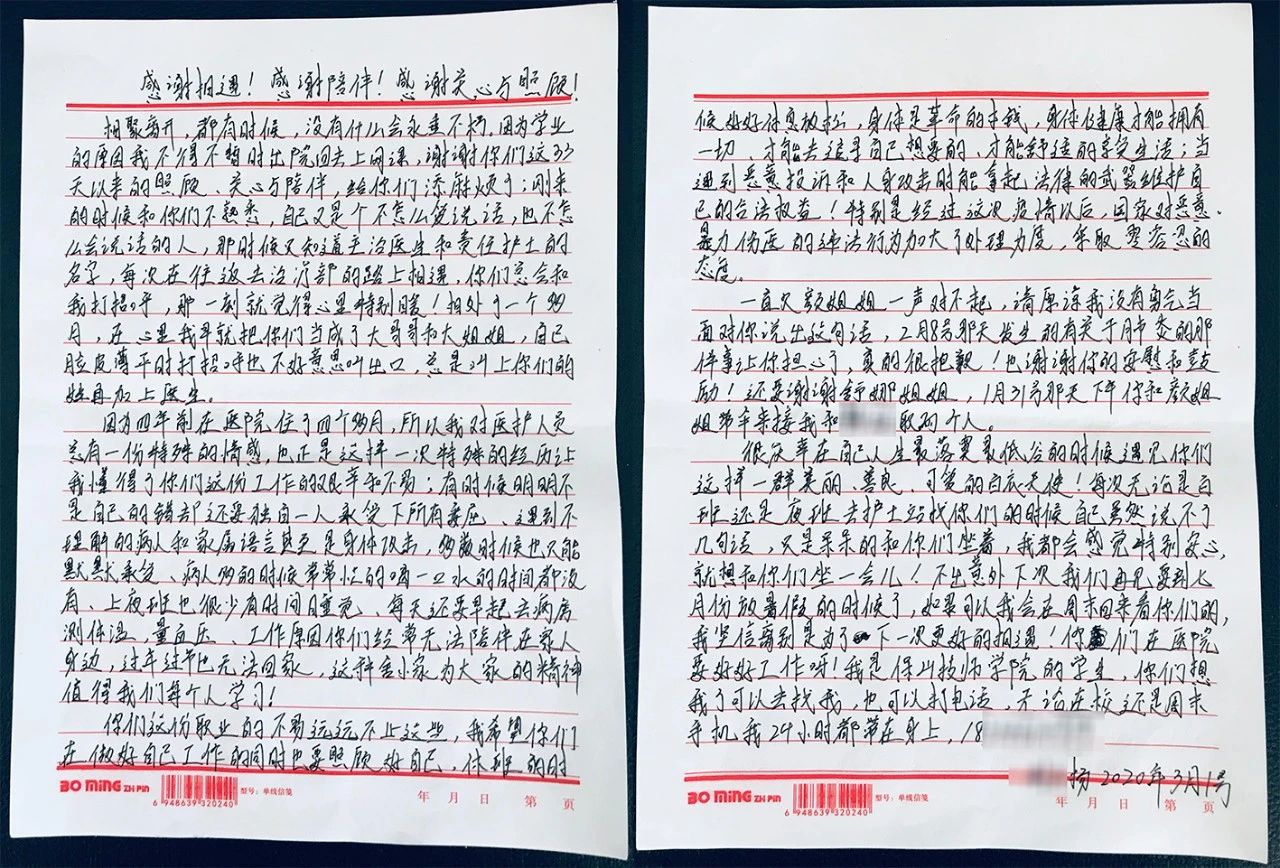 感谢相遇！感谢陪伴！感谢关心与照顾！
相聚离开，都有时候，没有什么会永垂不朽，因为学业
的原因我不得不暂时出院回去上网课，谢谢你们这33
天以来的照顾、关心与陪伴，给你们添麻烦了；刚来
的时候和你们不熟悉，自己又是个不怎么爱说话，也不怎
么会说话的人，那时候只知道主治医生和责任护士的
名字，每次在往返去治疗部的路上相遇，你们总会和
我打招呼，那一刻就觉得心里特别暖！相处了一个多
月，在心里我早就把你们当成了大哥哥和大姐姐，自己
脸皮薄平时打招呼也不好意思叫出口，总是叫上你们的
姓再加上医生。
因为四年前在医院住了四个多月，所以我对医护人员
总有一份特殊的情感，也正是这样一次特殊的经历让
我懂得了你们这份工作的艰辛和不易；有时候明明不
是自己的错却还要独自一人承受下所有委屈、遇到不
理解的病人和家属语言甚至是身体攻击，多数时候也只能
默默承受、病人多的时候常常忙的喝一口水的时间都没
有、上夜班也很少有时间睡觉、每天还要早起去病房
测体温，量血压、工作原因你们经常无法陪伴在家人
身边，过年过节也无法回家，这种舍小家为大家的精神
值得我们每个人学习！
你们这份职业的不易远远不止这些，我希望你们
在做好自己工作的同时也要照顾好自己，休班的时
BO MING ZHI PIN
6 948639 320240
型号：单线信笺
年 月 日 第 页
候好好休息放松，身体是革命的本钱，身体健康才能拥有
一切、才能去追寻自己想要的、才能舒适的享受生活；当
遇到恶意投诉和人身攻击时能拿起法律的武器维护自
己的合法权益！特别是经过这次疫情以后，国家对恶意、
暴力伤医的违法行为加大了处理力度，采取零容忍的
态度。
一直欠颜姐姐一声对不起，请原谅我没有勇气当
面对你说出这句话，2月8号那天发生的有关于月市委的那
件事让你担心了，真的很抱歉！也谢谢你的安慰和鼓
励！还要谢谢舒娜姐姐，1月31号那天下午你和颜姐
姐带伞来接我和 取药个人。
很庆幸在自己人生最落寞最低谷的时候遇见你们
这样一群美丽、善良、可爱的白衣天使！每次无论是白
班还是夜班去护士站找你们的时候自己虽然说不了
几句话，只是呆呆的和你们坐着，我都会感觉特别安心，
就想和你们坐一会儿！不出意外下次我们再见要到七
月份放暑假的时候了，如果可以我会在周末回来看你们的，
我坚信离别是为了下一次更好的相遇！你们在医院
要好好工作呀！我是保山技师学院的学生，你们想
我了可以去找我，也可以打电话，无论在校还是周末
手机我24小时都带在身上，18
扬 2020年3月1号
BO MING ZHI PIN
6 948639 320240
型号：单线信笺
年 月 日 第 页